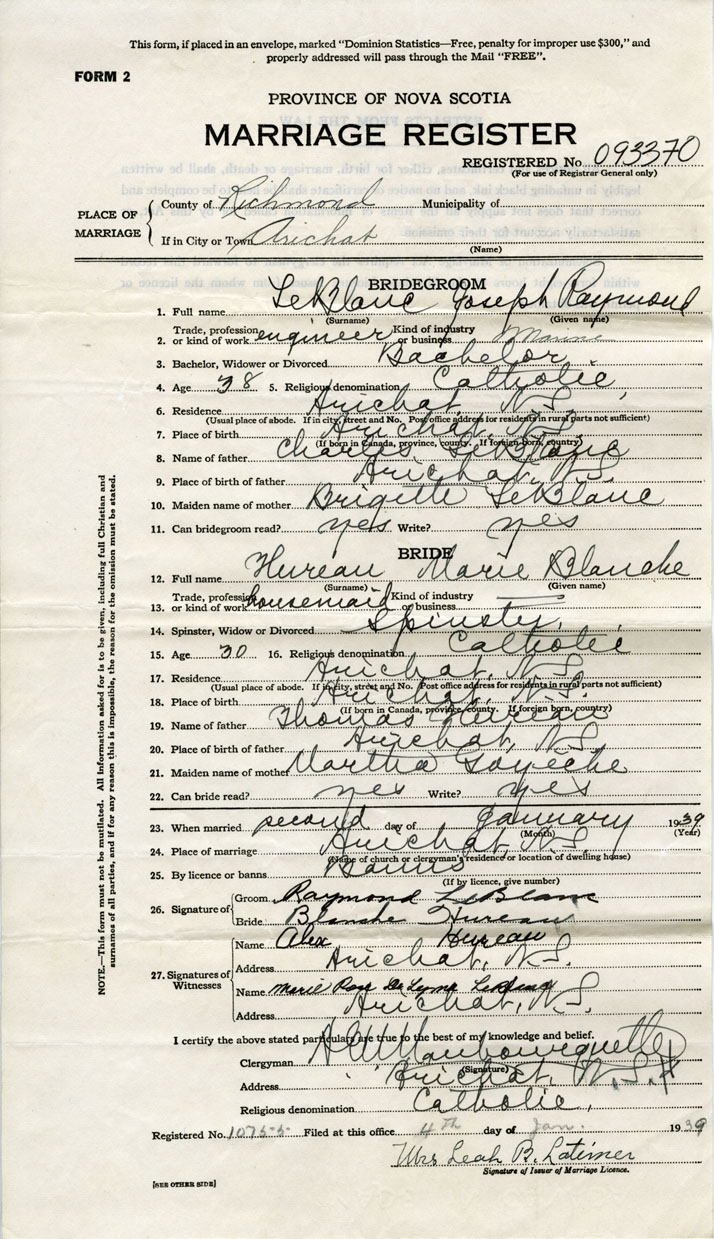 This form, if placed in an envelope, marked "Dominion Statistics—Free, penalty for improper use $300," and
properly addressed will pass through the Mail "FREE".
FORM 2
PROVINCE OF NOVA SCOTIA
MARRIAGE REGISTER
REGISTERED No. 093370
(For use of Registrar General only)
PLACE OF MARRIAGE
County of Richmond Municipality of
If in City or Town Arichat
(Name)
BRIDEGROOM
1. Full name LeBlanc Joseph Raymond
(Surname) (Given name)
2. Trade, profession or kind of work engineer Kind of industry or business Marine
3. Bachelor, Widower or Divorced Bachelor
4. Age 38 5. Religious denomination Catholic,
6. Residence Arichat, N.S.
(Usual place of abode. If in city, street and No. Post office address for residents in rural parts not sufficient)
7. Place of birth Arichat, N.S.
(If born in Canada, province, county. If foreign born, country)
8. Name of father Charles LeBlanc
9. Place of birth of father Arichat, N.S.
10. Maiden name of mother Brigitte LeBlanc
11. Can bridegroom read? yes Write? yes
BRIDE
12. Full name Hureau Marie Blanche
(Surname) (Given name)
13. Trade, profession or kind of work housemaid Kind of industry or business
14. Spinster, Widow or Divorced Spinster,
15. Age 30 16. Religious denomination Catholic
17. Residence Arichat, N.S.
(Usual place of abode. If in city, street and No. Post office address for residents in rural parts not sufficient)
18. Place of birth Arichat, N.S.
(If born in Canada, province, county. If foreign born, country)
19. Name of father Thomas Hureau
20. Place of birth of father Arichat, N.S.
21. Maiden name of mother Martha
22. Can bride read? yes Write? yes
23. When married second day of January 1939
(Month) (Year)
24. Place of marriage Arichat N.S.
(Name of church or clergyman's residence or location of dwelling house)
25. By licence or banns Banns
(If by licence, give number)
26. Signature of
Groom Raymond LeBlanc
Bride Blanche Hureau
27. Signatures of Witnesses
Name Alex Hureau
Address Arichat, N.S.
Name Marie Rose
Address Arichat, N.S.
I certify the above stated particulars are true to the best of my knowledge and belief.
Clergyman
(Signature)
Address Arichat, N.S.
Religious denomination Catholic,
Registered No. 10755 Filed at this office 4th day of Jan. 1939
Mrs Leah B. Latimer
Signature of Issuer of Marriage Licence.
[SEE OTHER SIDE]
NOTE.—This form must not be mutilated. All information asked for is to be given, including full Christian and
surnames of all parties, and if for any reason this is impossible, the reason for the omission must be stated.